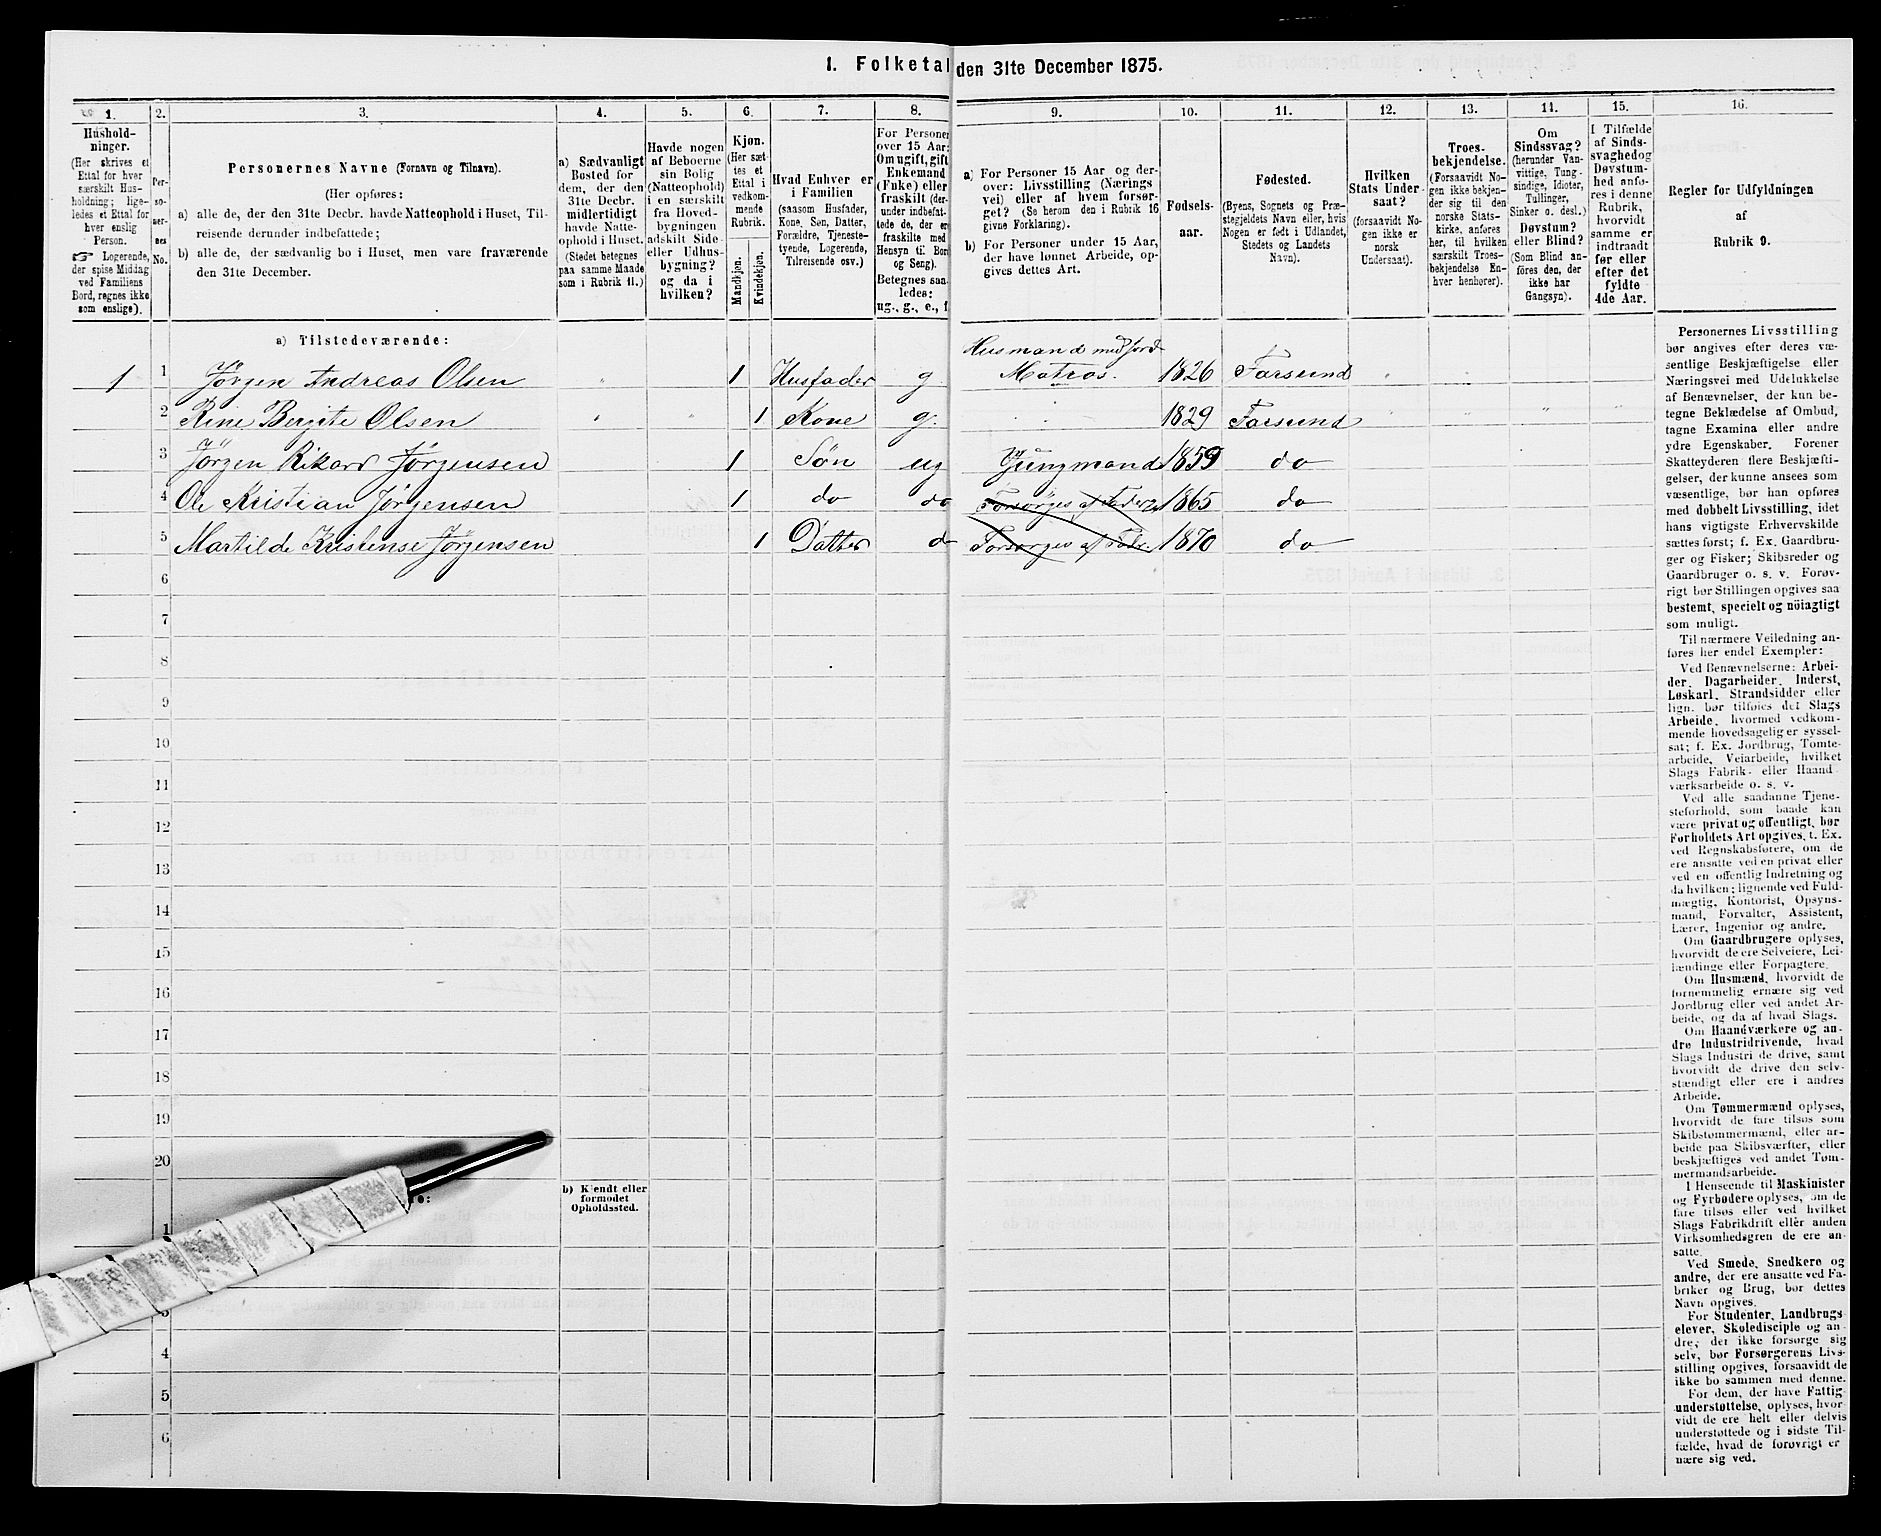 1. Folketal den 31te December 1875.
1.
2.
3.
4.
5.
6.
7.
8.
9.
10.
11.
12.
13.
14.
15.
16.
Hushold-
ninger.
(Her skrives et
Ettal for hver
særskilt Hus-
holdning; lige-
ledes et Ettal for
hver enslig
Person.
☞ Logerende,
der spise Middag
ved Familiens
Bord, regnes ikke
som enslige).
Per-
so-
ner-
nes
No.
Personernes Navne (Fornavn og Tilnavn).
(Her opføres:
a) alle de, der den 31te Decbr. havde Natteophold i Huset, Til-
reisende derunder indbefattede;
b) alle de, der sædvanlig bo i Huset, men vare fraværende
den 31te December.
a) Sædvanligt
Bosted for
dem, der den
31te Decbr.
midlertidigt
havde Natte-
ophold i Huset.
(Stedet betegnes
paa samme Maade
som i Rubrik 11.)
Havde nogen
af Beboerne
sin Bolig
(Natteophold)
i en særskilt
fra Hoved-
bygningen
adskilt Side-
eller Udhus-
bygning?
og da i
hvilken?
Kjøn.
(Her sæt-
tes et
Ettal i
vedkom-
mende
Rubrik.
Mandkjøn.
Kvindekjøn.
Hvad Enhver er
i Familien
(saasom Husfader,
Kone, Søn, Datter,
Forældre, Tjeneste-
tyende, Logerende,
Tilreisende osv.)
For Personer
over 15 Aar:
Om ugift, gift
Enkemand
(Enke) eller
fraskilt (der-
under indbefat-
tede de, der er
fraskilte med
Hensyn til Bord
og Seng).
Betegnes saa-
ledes:
ug., g., e., f.
a) For Personer 15 Aar og der-
over: Livsstilling (Nærings
vei) eller af hvem forsør-
get? (Se herom den i Rubrik 16
givne Forklaring).
b) For Personer under 15 Aar,
der have lønnet Arbeide, op-
gives dettes Art.
Fødsels-
aar.
Fødested.
(Byens, Sognets og Præ-
stegjeldets Navn eller, hvis
Nogen er født i Udlandet,
Stedets og Landets
Navn).
Hvilken
Stats Under-
saat?
(forsaavidt No-
gen ikke er
norsk
Undersaat).
Troes-
bekjendelse.
(Forsaavidt No-
gen ikke bekjen-
der sig til den
norske Stats-
kirke, anføres
her, til hvilken
særskilt Troes-
bekjendelse En-
hver henhører).
Om
Sindssvag?
(herunder Van-
vittige, Tung-
sindige, Idioter,
Tullinger,
Sinker o. desl.)
Døvstum?
eller Blind?
(Som Blind an-
føres den, der
ikke har
Gangsyn).
I Tilfælde
af Sinds-
svaghed og
Døvstum-
hed anfø-
res i denne
Rubrik,
hvorvidt
samme er
indtraadt
før eller
efter det
fyldte
4de Aar.
Regler for Udfyldningen
af
Rubrik 9.
a) Tilstedeværende:
Husmand med jord
1 1 Jørgen Andreas Olsen 1 Husfader g Matros. 1826 Farsund
2 Rine Bergite Olsen 1 Kone g. 1829 Farsund
3 Jørgen Rikard Jørgensen 1 Søn ug Jungmand 1859 do
4 Ole Kristian Jørgensen 1 do do Forsørges af Fader 1865 do
5 Martilde Kristense Jørgensen 1 Datter do Forsørges af Fader 1870 do
6
7
8
9
10
11
12
13
14
15
16
17
18
19
20
b) Kjendt eller
formodet
Opholdssted.
1
3
4
5
6
Personernes Livsstilling
bør angives efter deres væ-
sentlige Beskjæftigelse eller
Næringsvei med Udelukkelse
af Benævnelser, der kun be-
tegne Beklædelse af Ombud,
tagne Examina eller andre
ydre Egenskaber. Forener
Skatteyderen flere Beskjæfti-
gelser, der kunne ansees som
væsentlige, bør han opføres
med dobbelt Livsstilling, idet
hans vigtigste Erhvervskilde
sættes først; f. Ex. Gaardbru-
ger og Fisker; Skibsreder og
Gaardbruger o. s. v. Forøv-
rigt bør Stillingen opgives saa
bestemt, specielt og nöiagtigt
som muligt.
Til nærmere Veiledning an-
føres her endel Exempler:
Ved Benævnelserne: Arbei-
der, Dagarbeider, Inderst,
Løskarl, Strandsidder eller
lign. bør tilføies det Slags
Arbeide, hvormed vedkom-
mende hovedsagelig er syssel-
sat; f. Ex. Jordbrug, Tomte-
arbeide, Veiarbeide, hvilket
Slags Fabrik- eller Haand-
værksarbeide o. s. v.
Ved alle saadanne Tjene-
steforhold, som baade kan
være privat og offentligt, bør
Forholdets Art opgives, t. Ex.
ved Regnskabsførere, om de
ere ansatte ved en privat eller
ved en offentlig Indretning og
da hvilken; lignende ved Fuld-
mægtig, Kontorist, Opsyns-
mand, Forvalter, Assistent,
Lærer, Ingeniør og andre.
Om Gaardbrugere oplyses,
hvorvidt de ere Selveiere, Lei-
lændinge eller Forpagtere.
Om Husmænd, hvorvidt de
fornemmelig ernære sig ved
Jordbrug eller ved andet Ar-
beide, og da af hvad Slags.
Om Haandværkere og an-
dre Industridrivende, hvad
Slags Industri de drive, samt
hvorvidt de drive den selv-
stændigt eller ere i andres
Arbeide.
Om Tømmermænd oplyses,
hvorvidt de fare tilsøs som
Skibstømmermænd, eller ar-
beide paa Skibsværfter, eller
beskjæftiges ved andet Tøm-
mermandsarbeide.
I Henseende til Maskinister
og Fyrbødere oplyses, om de
fare tilsøs eller ved hvilket
Slags Fabrikdrift eller anden
Virksomhedsgren de ere an-
satte.
Ved Smede, Snedkere og
andre, der ere ansatte ved Fa-
briker og Brug, bør dettes
Navn opgives.
For Studenter, Landbrugs-
elever, Skoledisciple og an-
dre, der ikke forsørge sig
selv, bør Forsørgerens Livs-
stilling opgives, forsaavidt de
ikke bo sammen med denne.
For dem, der have Fattig-
understøttelse, oplyses, hvor-
vidt de ere helt eller delvis
understøttede og i sidste Til-
fælde, hvad de forøvrigt er
nære sig ved.